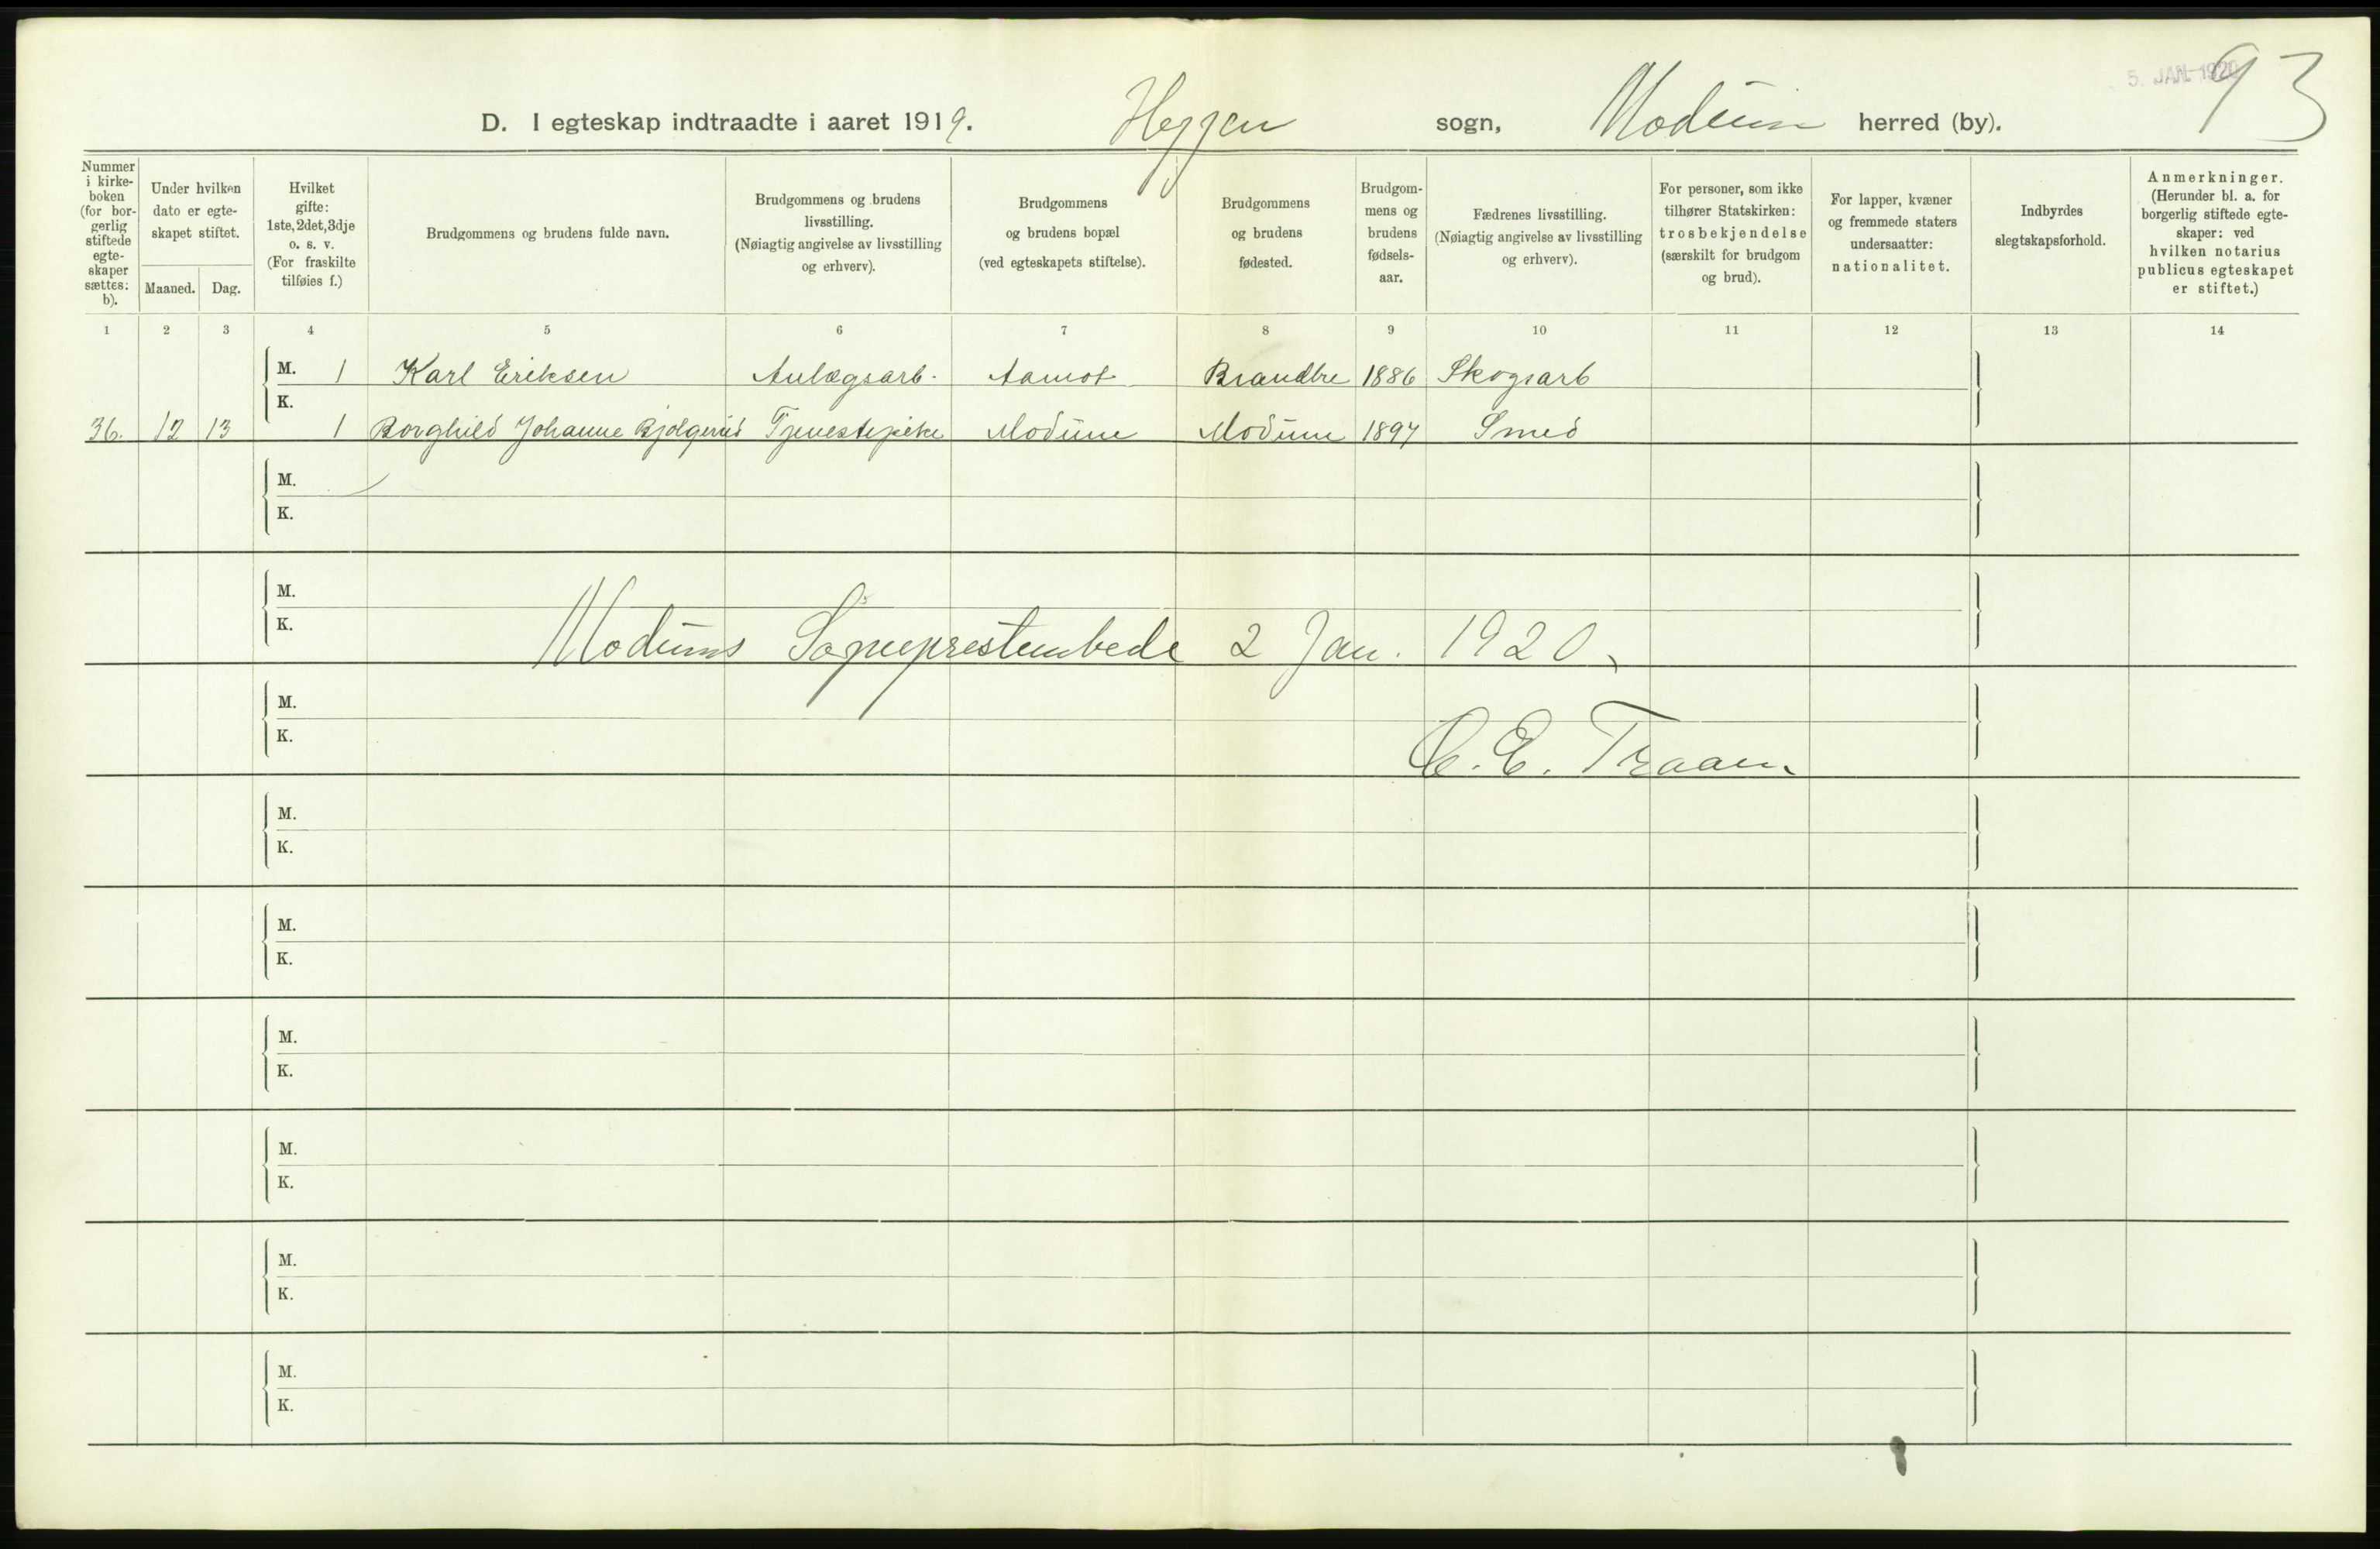 5. JAN. 1920
93
D. I egteskap indtraadte i aaret 1919. Heggen sogn, Modum herred (by).
Nummer i kirke- boken (for bor- gerlig stiftede egte- skaper sættes: b).
Under hvilken dato er egte- skapet stiftet.
Maaned. Dag.
Hvilket gifte: 1ste, 2det, 3dje o. s. v. (For fraskilte tilføies f.)
Brudgommens og brudens fulde navn.
Brudgommens og brudens livsstilling. (Nøiagtig angivelse av livsstilling og erhverv).
Brudgommens og brudens bopæl (ved egteskapets stiftelse).
Brudgommens og brudens fødested.
Brudgom- mens og brudens fødsels- aar.
Fædrenes livsstilling. (Nøiagtig angivelse av livsstilling og erhverv).
For personer, som ikke tilhører Statskirken: trosbekjendelse (særskilt for brudgom og brud).
For lapper, kvæner og fremmede staters undersaatter: nationalitet.
Indbyrdes slegtskapsforhold.
Anmerkninger. (Herunder bl. a. for borgerlig stiftede egte- skaper: ved hvilken notarius publicus egteskapet er stiftet.)
1 2 3 4 5 6 7 8 9 10 11 12 13 14
M. 1 Karl Eriksen Anlægsarb. Aamot Brandbu 1886 Skogsarb
K.
36. 12 13 1 Borghild Johanne Bjølgerud Tjenestepike Modum Modum 1897 Smed
M.
K.
M.
K.
Modums Sogneprestembede 2 Jan. 1920.
M.
K.
C. E. Traaen
M.
K.
M.
K.
M.
K.
M.
K.
M.
K.
M.
K.